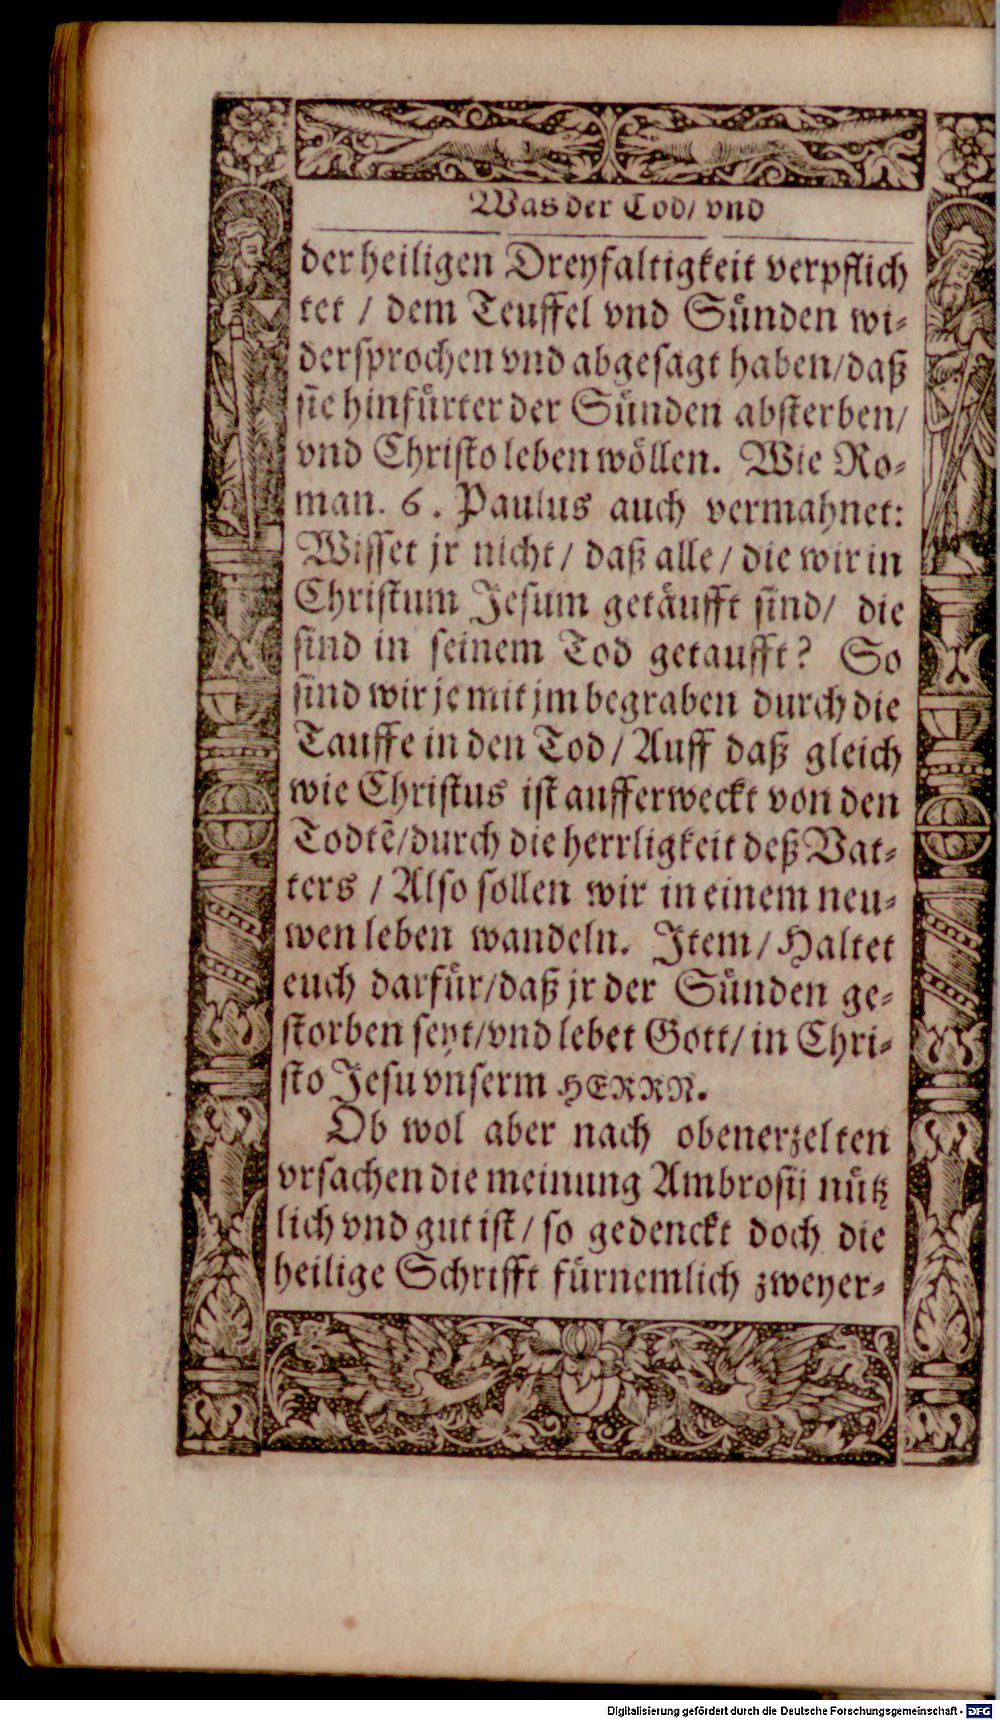 Was der Tod/ vnd
der heiligen Dreyfaltigkeit verpflich
tet / dem Teuffel vnd Sünden wi-
dersprochen vnd abgesagt haben/daß
sie hinfürter der Sünden absterben/
vnd Christo leben wöllen. Wie Ro-
man. 6. Paulus auch vermahnet:
Wisset jr nicht/ daß alle/ die wir in
Christum Jesum getäufft sind/ die
sind in seinem Tod getaufft? So
sind wir je mit jm begraben durch die
Tauffe in den Tod/ Auff daß gleich
wie Christus ist aufferweckt von den
Todtẽ/durch die herrligkeit deß Vat-
ters / Also sollen wir in einem neu-
wen leben wandeln. Item/ Haltet
euch darfür/daß jr der Sünden ge-
storben seyt/vnd lebet Gott/ in Chri-
sto Jesu vnserm HERRN.
Ob wol aber nach obenerzelten
vrsachen die meinung Ambrosij nütz
lich vnd gut ist/ so gedenckt doch die
heilige Schrifft fürnemlich zweyer-
Digitalisierung gefördert durch die Deutsche Forschungsgemeinschaft - DFG